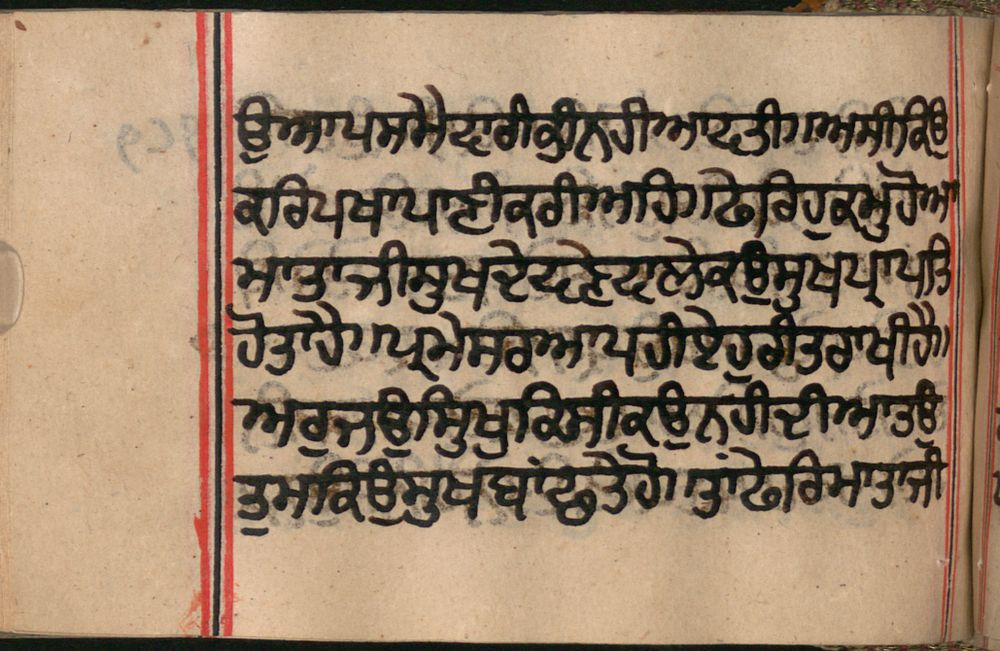 ਉਆਪਸਮੈਦਾਰੀਕੀਨਹੀਆਫਤੀ॥ਅਸੀਕਿਉ
ਕਰਿਪਖਾਪਾਣੀਕਰੀਅਹਿ॥ਫੇਰਿਹੁਕਮੁਹੋਆ
ਮਾਤਾਜੀਸੁਖਦੇਦਣੇਦਾਲੇਕਉਸੁਖਪ੍ਰਾਪਤਿ
ਹੋਤਾਹੈ॥ਪ੍ਰਮੇਸਰਆਪਹੀਏਹੁਰੀਤਰਾਖੀਹੈ॥
ਅਰੁਜਉਸਿਖੁਕਿਸੀਕਉਨਹੀਦੀਆਤਉ
ਤੁਮਕਿਉਸੁਖਬਾਂਛਤੇਹੋ॥ਤਾਂਫੇਰਿਮਾਤਾਜੀ